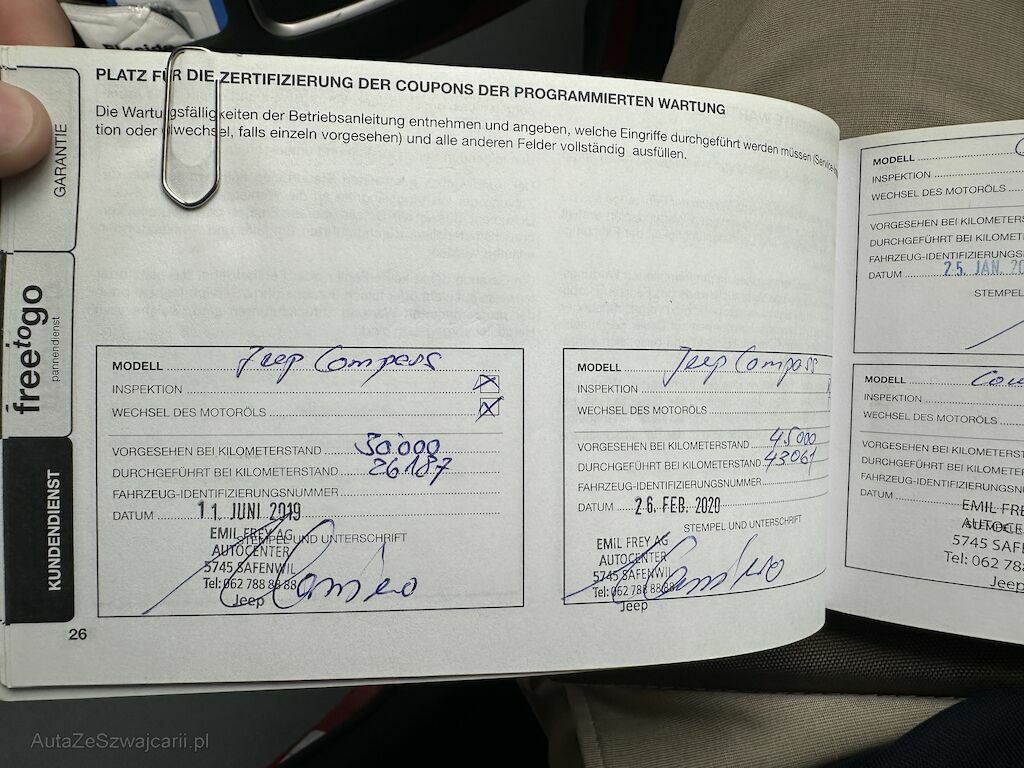 PLATZ FÜR DIE ZERTIFIZIERUNG DER COUPONS DER PROGRAMMIERTEN WARTUNG
Die Wartungsfälligkeiten der Betriebsanleitung entnehmen und angeben, welche Eingriffe durchgeführt werden müssen (Service
tion oder Ölwechsel, falls einzeln vorgesehen) und alle anderen Felder vollständig ausfüllen.
GARANTIE
freetogo
pannendienst
KUNDENDIENST
MODELL Jeep Compass
INSPEKTION
WECHSEL DES MOTORÖLS
VORGESEHEN BEI KILOMETERSTAND 30'000
DURCHGEFÜHRT BEI KILOMETERSTAND 26187
FAHRZEUG-IDENTIFIZIERUNGSNUMMER
DATUM 11. JUNI 2019
STEMPEL UND UNTERSCHRIFT
EMIL FREY AG
AUTOCENTER
5745 SAFENWIL
Tel: 062 788 88 88
Jeep
MODELL Jeep Compass
INSPEKTION
WECHSEL DES MOTORÖLS
VORGESEHEN BEI KILOMETERSTAND 45000
DURCHGEFÜHRT BEI KILOMETERSTAND 43061
FAHRZEUG-IDENTIFIZIERUNGSNUMMER
DATUM 26. FEB. 2020
STEMPEL UND UNTERSCHRIFT
EMIL FREY AG
AUTOCENTER
5745 SAFENWIL
Tel: 062 788 88 88
Jeep
26
MODELL
INSPEKTION
WECHSEL DES MOTORÖLS
VORGESEHEN BEI KILOMETER
DURCHGEFÜHRT BEI KILOMET
FAHRZEUG-IDENTIFIZIERUNGS
DATUM 25. JAN. 20
STEMPEL
MODELL
INSPEKTION
WECHSEL DES MOTORÖLS
VORGESEHEN BEI KILOMETE
DURCHGEFÜHRT BEI KILOME
FAHRZEUG-IDENTIFIZIERUN
DATUM
EMIL FRE
5745 SAFEN
Tel: 062 7
Jeep
AutaZeSzwajcarii.pl